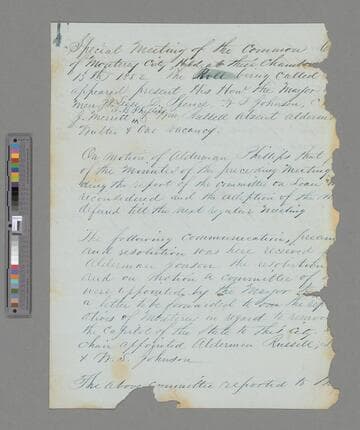 Special Meeting of the Common
of Monterey City Held at their Chamber
15th 1852, The Roll being called
appeared present His Honr the Mayor
men Spence, W S Johnson,
J. Merritt called absent aldermen
& one vacancy.
On Motion of Alderman Phillips that
of the Minutes of the preceding Meeting
the report of the committee on Loan
reconsidered and the adoption of the
defered till the next regular meeting
The following Communication,
and resolution was here received
Alderman the resolution
and on Motion a Committee of
were appointed by the Mayor
a letter to be forwarded to
of Monterey in regard to
the Capitol of the State to this City,
chair appointed Aldermen Russell,
& W. S. Johnson
The above Committee reported to